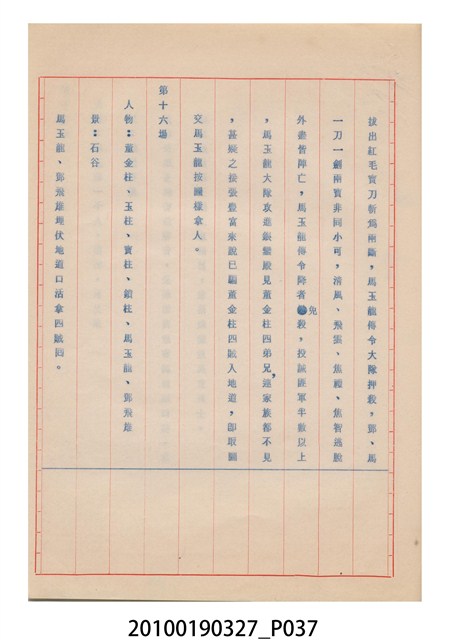 拔出紅毛寶刀斬為兩斷，馬玉龍傳令大隊押殺，鄧、馬
一刀一劍兩寶非同小可，清風、飛雲、焦禮、焦智逃脫
外盡皆陣亡，馬玉龍傳令降者免殺，投誠匪軍半數以上
，馬玉龍大隊攻進銀鑾殿見董金柱四弟兄，連家族都不見
，甚疑之後張豐富來說已騙董金柱四賊入地道，即取圖
交馬玉龍按圖樣拿人。
第十六場
人物：董金柱、玉柱、寶柱、鎖柱、馬玉龍、鄧飛雄
景：石谷
馬玉龍、鄧飛雄埋伏地道口活拿四賊囬。
20100190327_P037